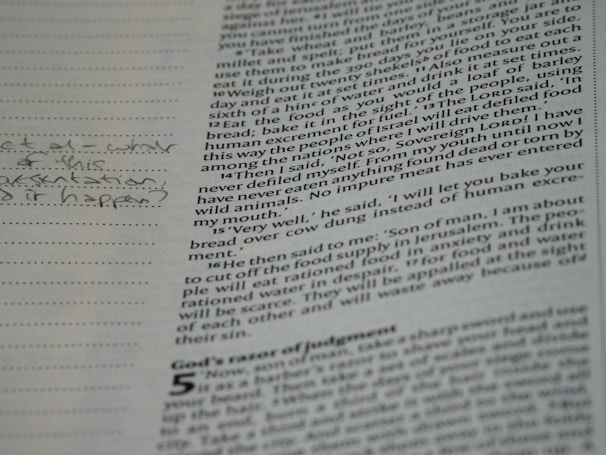 ctal - what
of this
presentation,
d it happen?
siege of Jerusalem
against her. 
you cannot turn from
you have finished the days of your
9 'Take wheat and barley, beans and
millet and spelt; put them in a storage jar and
use them to make bread for yourself. You are to
eat it during the 390 days you lie on your side.
10 Weigh out twenty shekels b of food to eat each
day and eat it at set times. 11 Also measure out a
sixth of a hin c of water and drink it at set times.
12 Eat the food as you would a loaf of barley
bread; bake it in the sight of the people, using
human excrement for fuel.' 13 The LORD said, 'In
this way the people of Israel will eat defiled food
among the nations where I will drive them.'
14 Then I said, 'Not so, Sovereign LORD! I have
never defiled myself. From my youth until now I
have never eaten anything found dead or torn by
wild animals. No impure meat has ever entered
my mouth.'
15 'Very well,' he said, 'I will let you bake your
bread over cow dung instead of human excre-
ment.'
16 He then said to me: 'Son of man, I am about
to cut off the food supply in Jerusalem. The peo-
ple will eat rationed food in anxiety and drink
rationed water in despair, 17 for food and water
will be scarce. They will be appalled at the sight
of each other and will waste away because of d
their sin.
God's razor of judgment
5 'Now, son of man, take a sharp sword and use
it as a barber's razor to shave your head and
your beard. Then take a set of scales and divide
up the hair. 2 When the days of your siege come
to an end, burn a third of the hair inside the
city. Take a third and strike it with the sword all